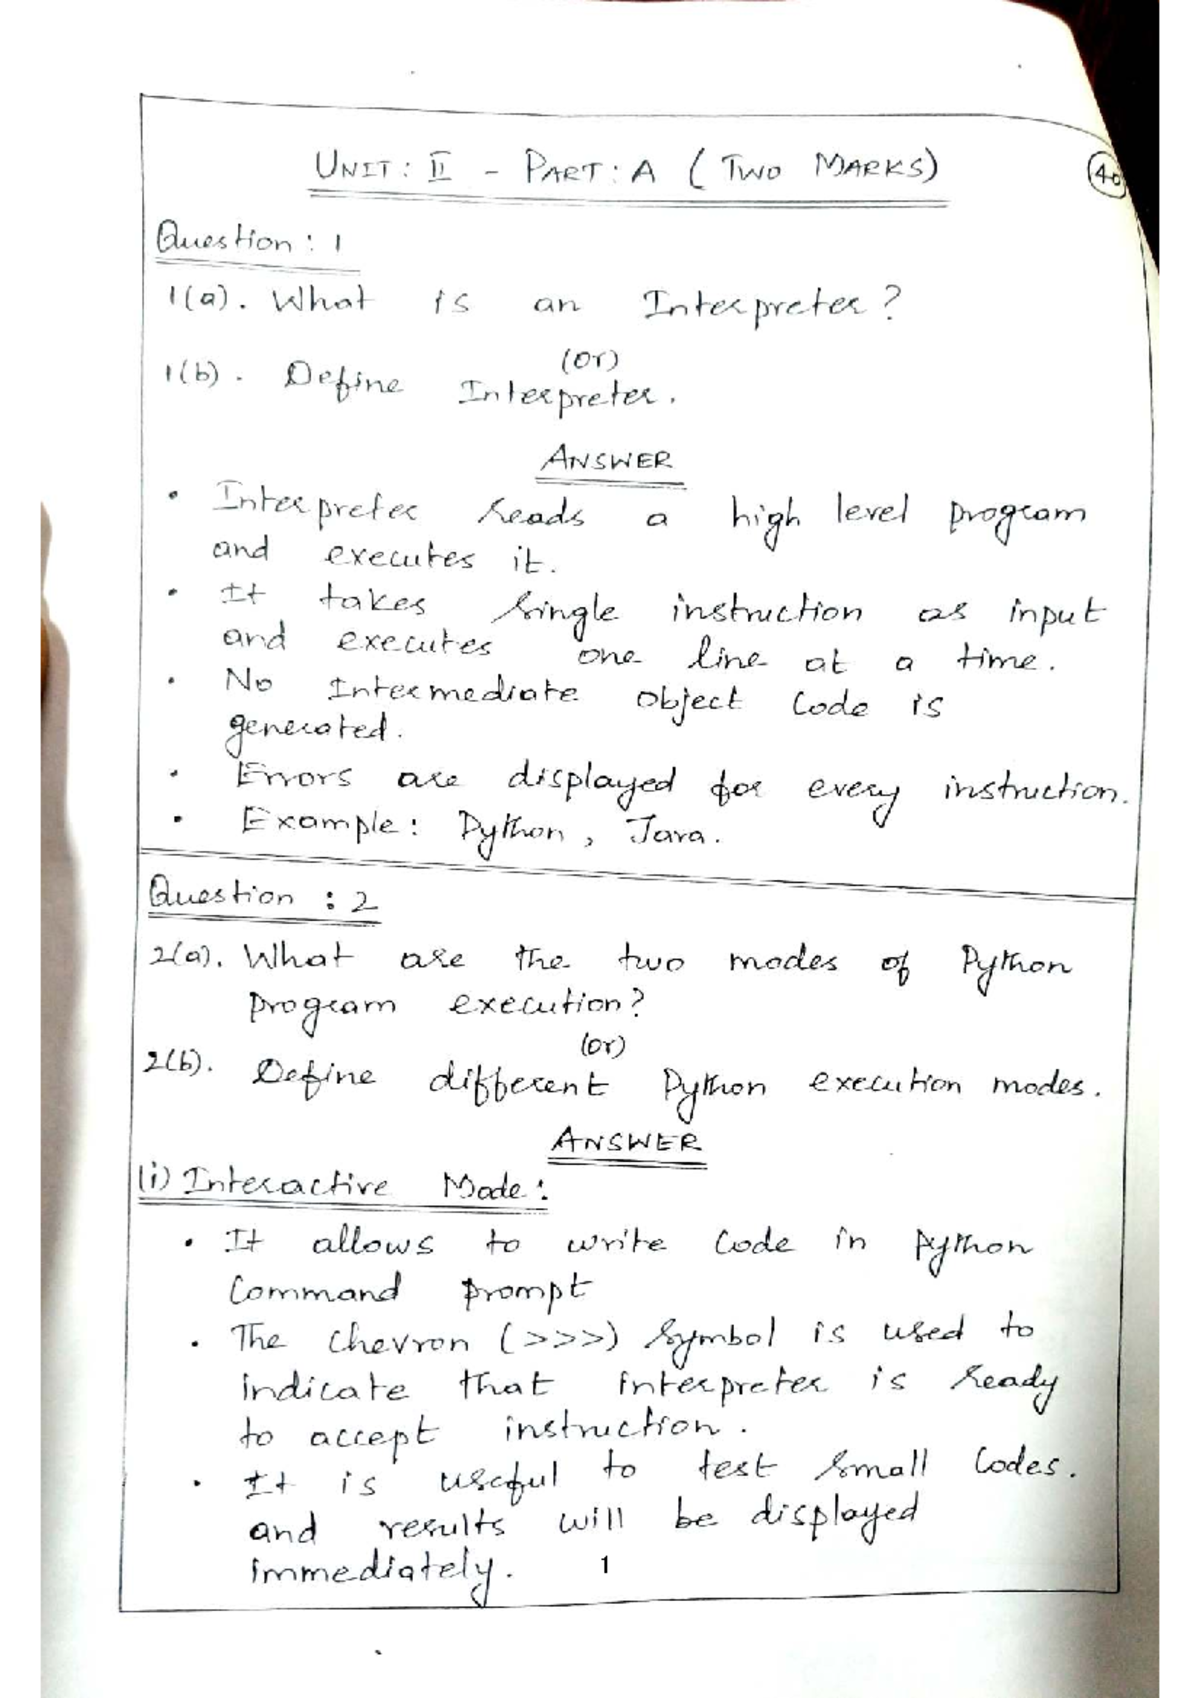 UNIT: II - PART: A (TWO MARKS)
40
Question: 1
1(a). What is an Interpreter?
(or)
1(b). Define Interpreter.
ANSWER
• Interpreter reads a high level program
and executes it.
• It takes single instruction as input
and executes one line at a time.
• No Intermediate object code is
generated.
• Errors are displayed for every instruction.
• Example: Python, Java.
Question : 2
2(a). What are the two modes of Python
program execution?
(or)
2(b). Define different Python execution modes.
ANSWER
(i) Interactive Mode:
• It allows to write code in python
command prompt
• The chevron (>>>) symbol is used to
indicate that interpreter is ready
to accept instruction.
• It is useful to test small codes.
and results will be displayed
immediately.
1